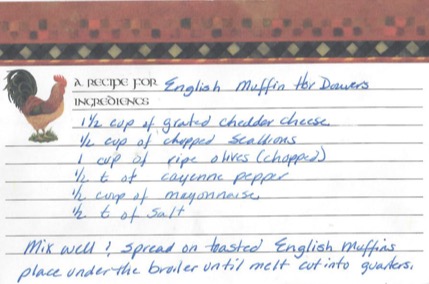 A RECIPE FOR English Muffin Hor Douvers
INGREDIENTS
1 1/2 cup of grated chedder cheese
1/2 cup of chopped scallions
1 cup of ripe olives (chopped)
1/2 t of cayenne pepper
1/2 cup of mayonnaise
1/2 t of salt
Mix well & spread on toasted English Muffins
place under the broiler until melt cut into quarters.